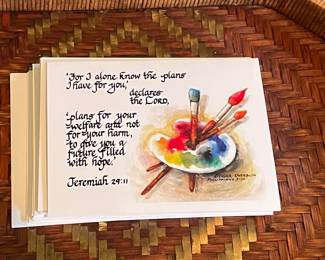 'For I alone know the plans
I have for you,'
declares
the LORD,
'plans for your
welfare and not
for your harm,
to give you a
future filled
with hope.'
Jeremiah 29:11